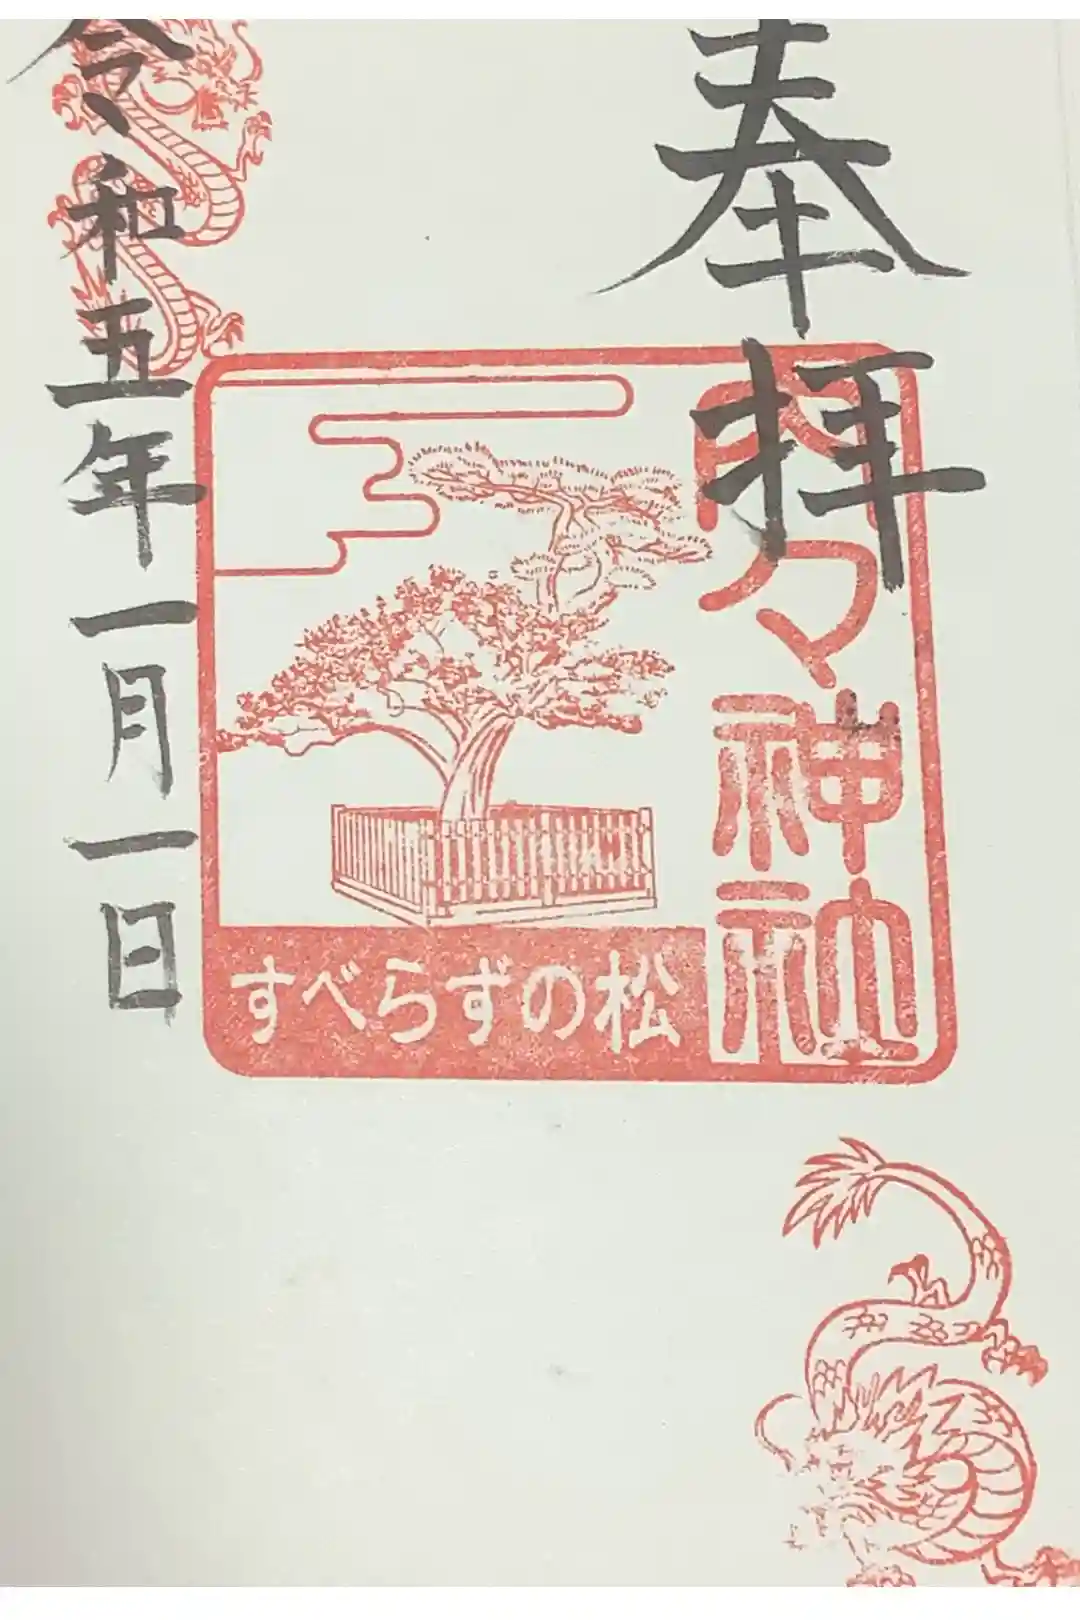 奉拝
内々神社
すべらずの松
令和五年一月一日